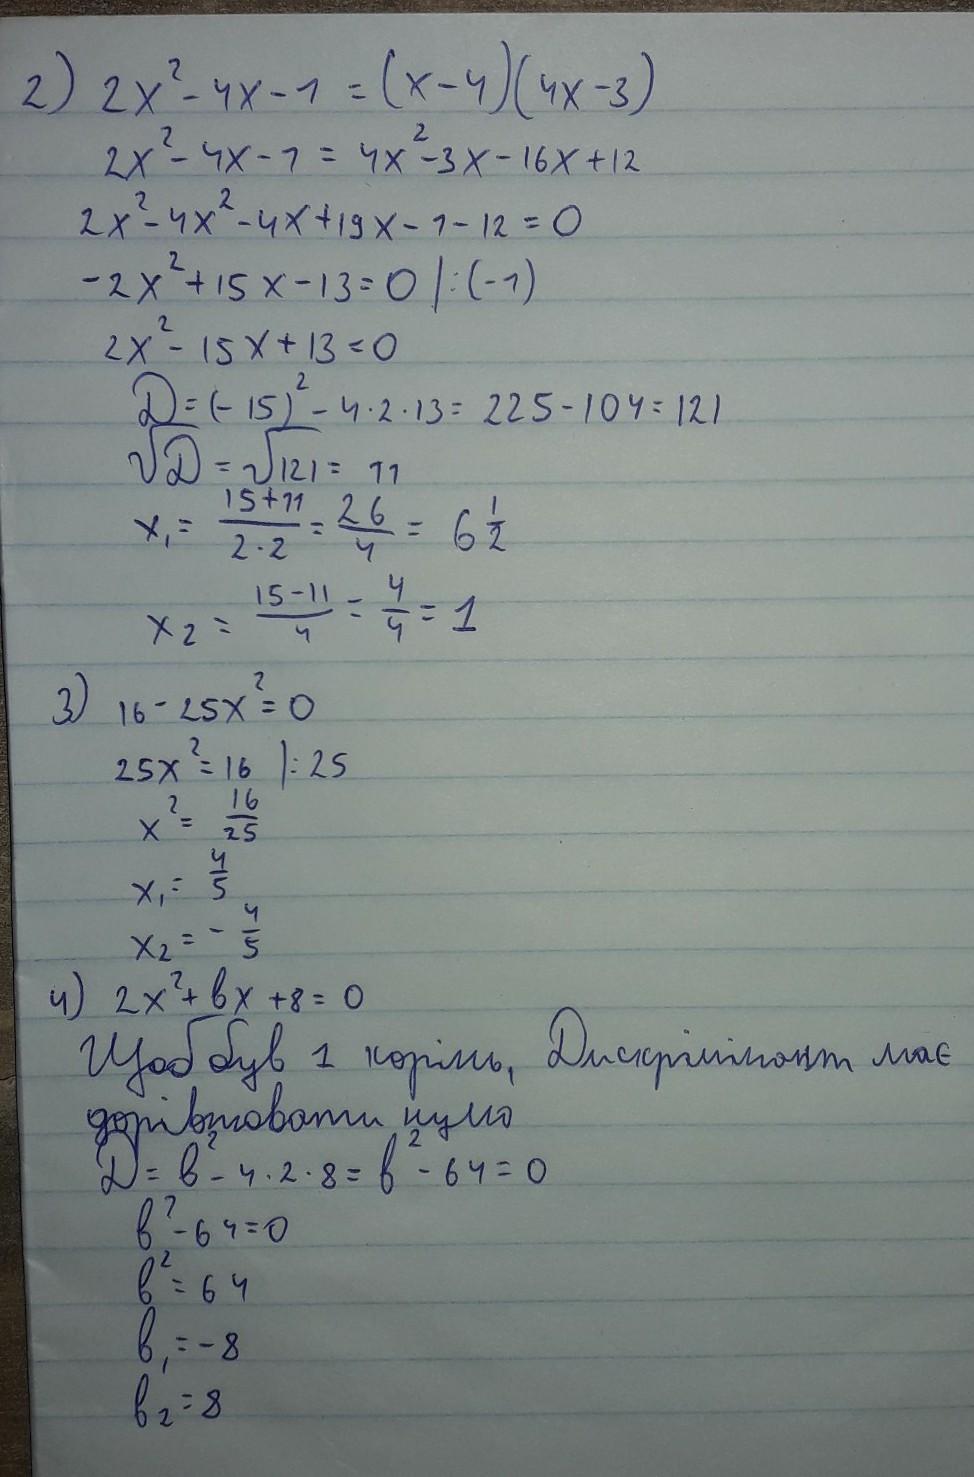 2) 2x² - 4x - 1 = (x - 4)(4x - 3)
2x² - 4x - 1 = 4x² - 3x - 16x + 12
2x² - 4x² - 4x + 19x - 1 - 12 = 0
-2x² + 15x - 13 = 0 |:(-1)
2x² - 15x + 13 = 0
D = (-15)² - 4·2·13 = 225 - 104 = 121
√D = √121 = 11
x₁ = (15+11)/(2·2) = 26/4 = 6 1/2
x₂ = (15-11)/4 = 4/4 = 1
3) 16 - 25x² = 0
25x² = 16 |:25
x² = 16/25
x₁ = 4/5
x₂ = -4/5
4) 2x² + bx + 8 = 0
Щоб був 1 корінь, Дискримінант має
дорівнювати нулю
D = b² - 4·2·8 = b² - 64 = 0
b² - 64 = 0
b² = 64
b₁ = -8
b₂ = 8